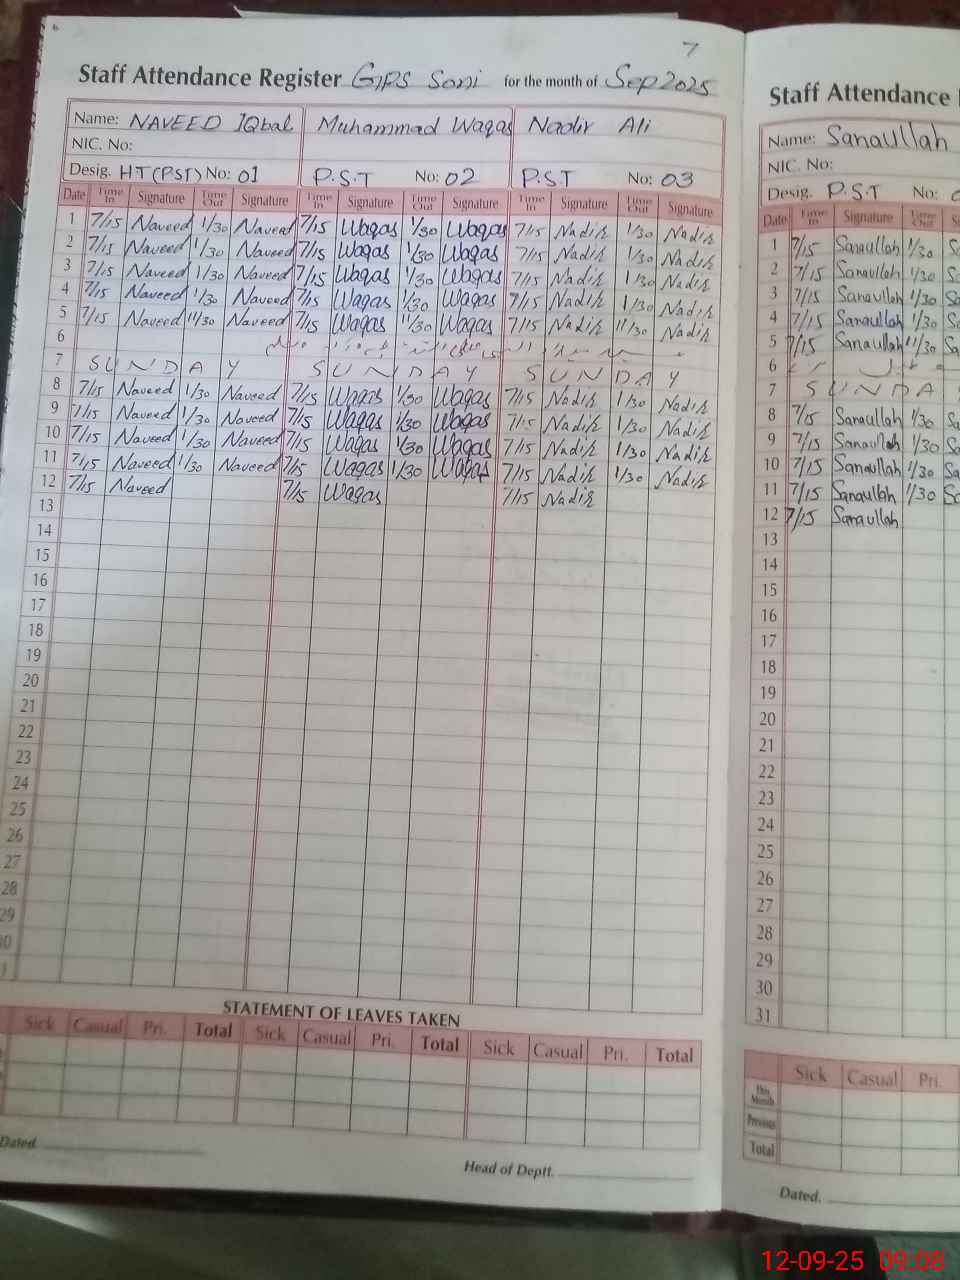 7
Staff Attendance Register GPS Soni for the month of Sep 2025
Name: NAVEED IQbal Muhammad Waqas Nadir Ali
NIC. No:
Desig. HT(PST) No: 01 P.S.T No: 02 P.S.T No: 03
Date Time In Signature Time Out Signature Time In Signature Time Out Signature Time In Signature Time Out Signature
1 7/15 Naveed 1/30 Naveed 7/15 Waqas 1/30 Waqas 7/15 Nadir 1/30 Nadir
2 7/15 Naveed 1/30 Naveed 7/15 Waqas 1/30 Waqas 7/15 Nadir 1/30 Nadir
3 7/15 Naveed 1/30 Naveed 7/15 Waqas 1/30 Waqas 7/15 Nadir 1/30 Nadir
4 7/15 Naveed 1/30 Naveed 7/15 Waqas 1/30 Waqas 7/15 Nadir 1/30 Nadir
5 7/15 Naveed 11/30 Naveed 7/15 Waqas 11/30 Waqas 7/15 Nadir 11/30 Nadir
6
7 SUNDAY SUNDAY SUNDAY
8 7/15 Naveed 1/30 Naveed 7/15 Waqas 1/30 Waqas 7/15 Nadir 1/30 Nadir
9 7/15 Naveed 1/30 Naveed 7/15 Waqas 1/30 Waqas 7/15 Nadir 1/30 Nadir
10 7/15 Naveed 1/30 Naveed 7/15 Waqas 1/30 Waqas 7/15 Nadir 1/30 Nadir
11 7/15 Naveed 1/30 Naveed 7/15 Waqas 1/30 Waqas 7/15 Nadir 1/30 Nadir
12 7/15 Naveed 7/15 Waqas 7/15 Nadir
13
14
15
16
17
18
19
20
21
22
23
24
25
26
27
28
29
STATEMENT OF LEAVES TAKEN
Sick Casual Pri. Total Sick Casual Pri. Total Sick Casual Pri. Total
Dated.
Head of Deptt.
Staff Attendance
Name: Sanaullah
NIC. No:
Desig. P.S.T No:
Date Time In Signature Time Out
1 7/15 Sanaullah 1/30
2 7/15 Sanaullah 1/30
3 7/15 Sanaullah 1/30
4 7/15 Sanaullah 1/30
5 7/15 Sanaullah 11/30
6
7 SUNDA
8 7/15 Sanaullah 1/30
9 7/15 Sanaullah 1/30
10 7/15 Sanaullah 1/30
11 7/15 Sanaullah 1/30
12 7/15 Sanaullah
13
14
15
16
17
18
19
20
21
22
23
24
25
26
27
28
29
30
31
Sick Casual Pri.
This Month
Previous
Total
Dated.
12-09-25 09:08